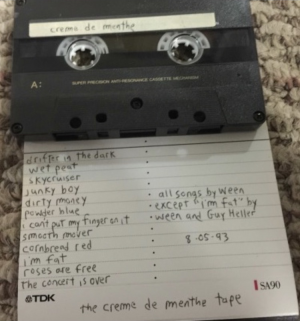 creme de menthe
A:
SUPER PRECISION ANTI-RESONANCE CASSETTE MECHANISM
drifter in the dark
wet peat
skycruiser
junky boy
dirty money
powder blue
i cant put my finger on it
smooth mover
cornbread red
i'm fat
roses are free
the concert is over
• all songs by ween
• except "i'm fat" by
• ween and Guy Heller
8-05-93
TDK
SA90
the creme de menthe tape